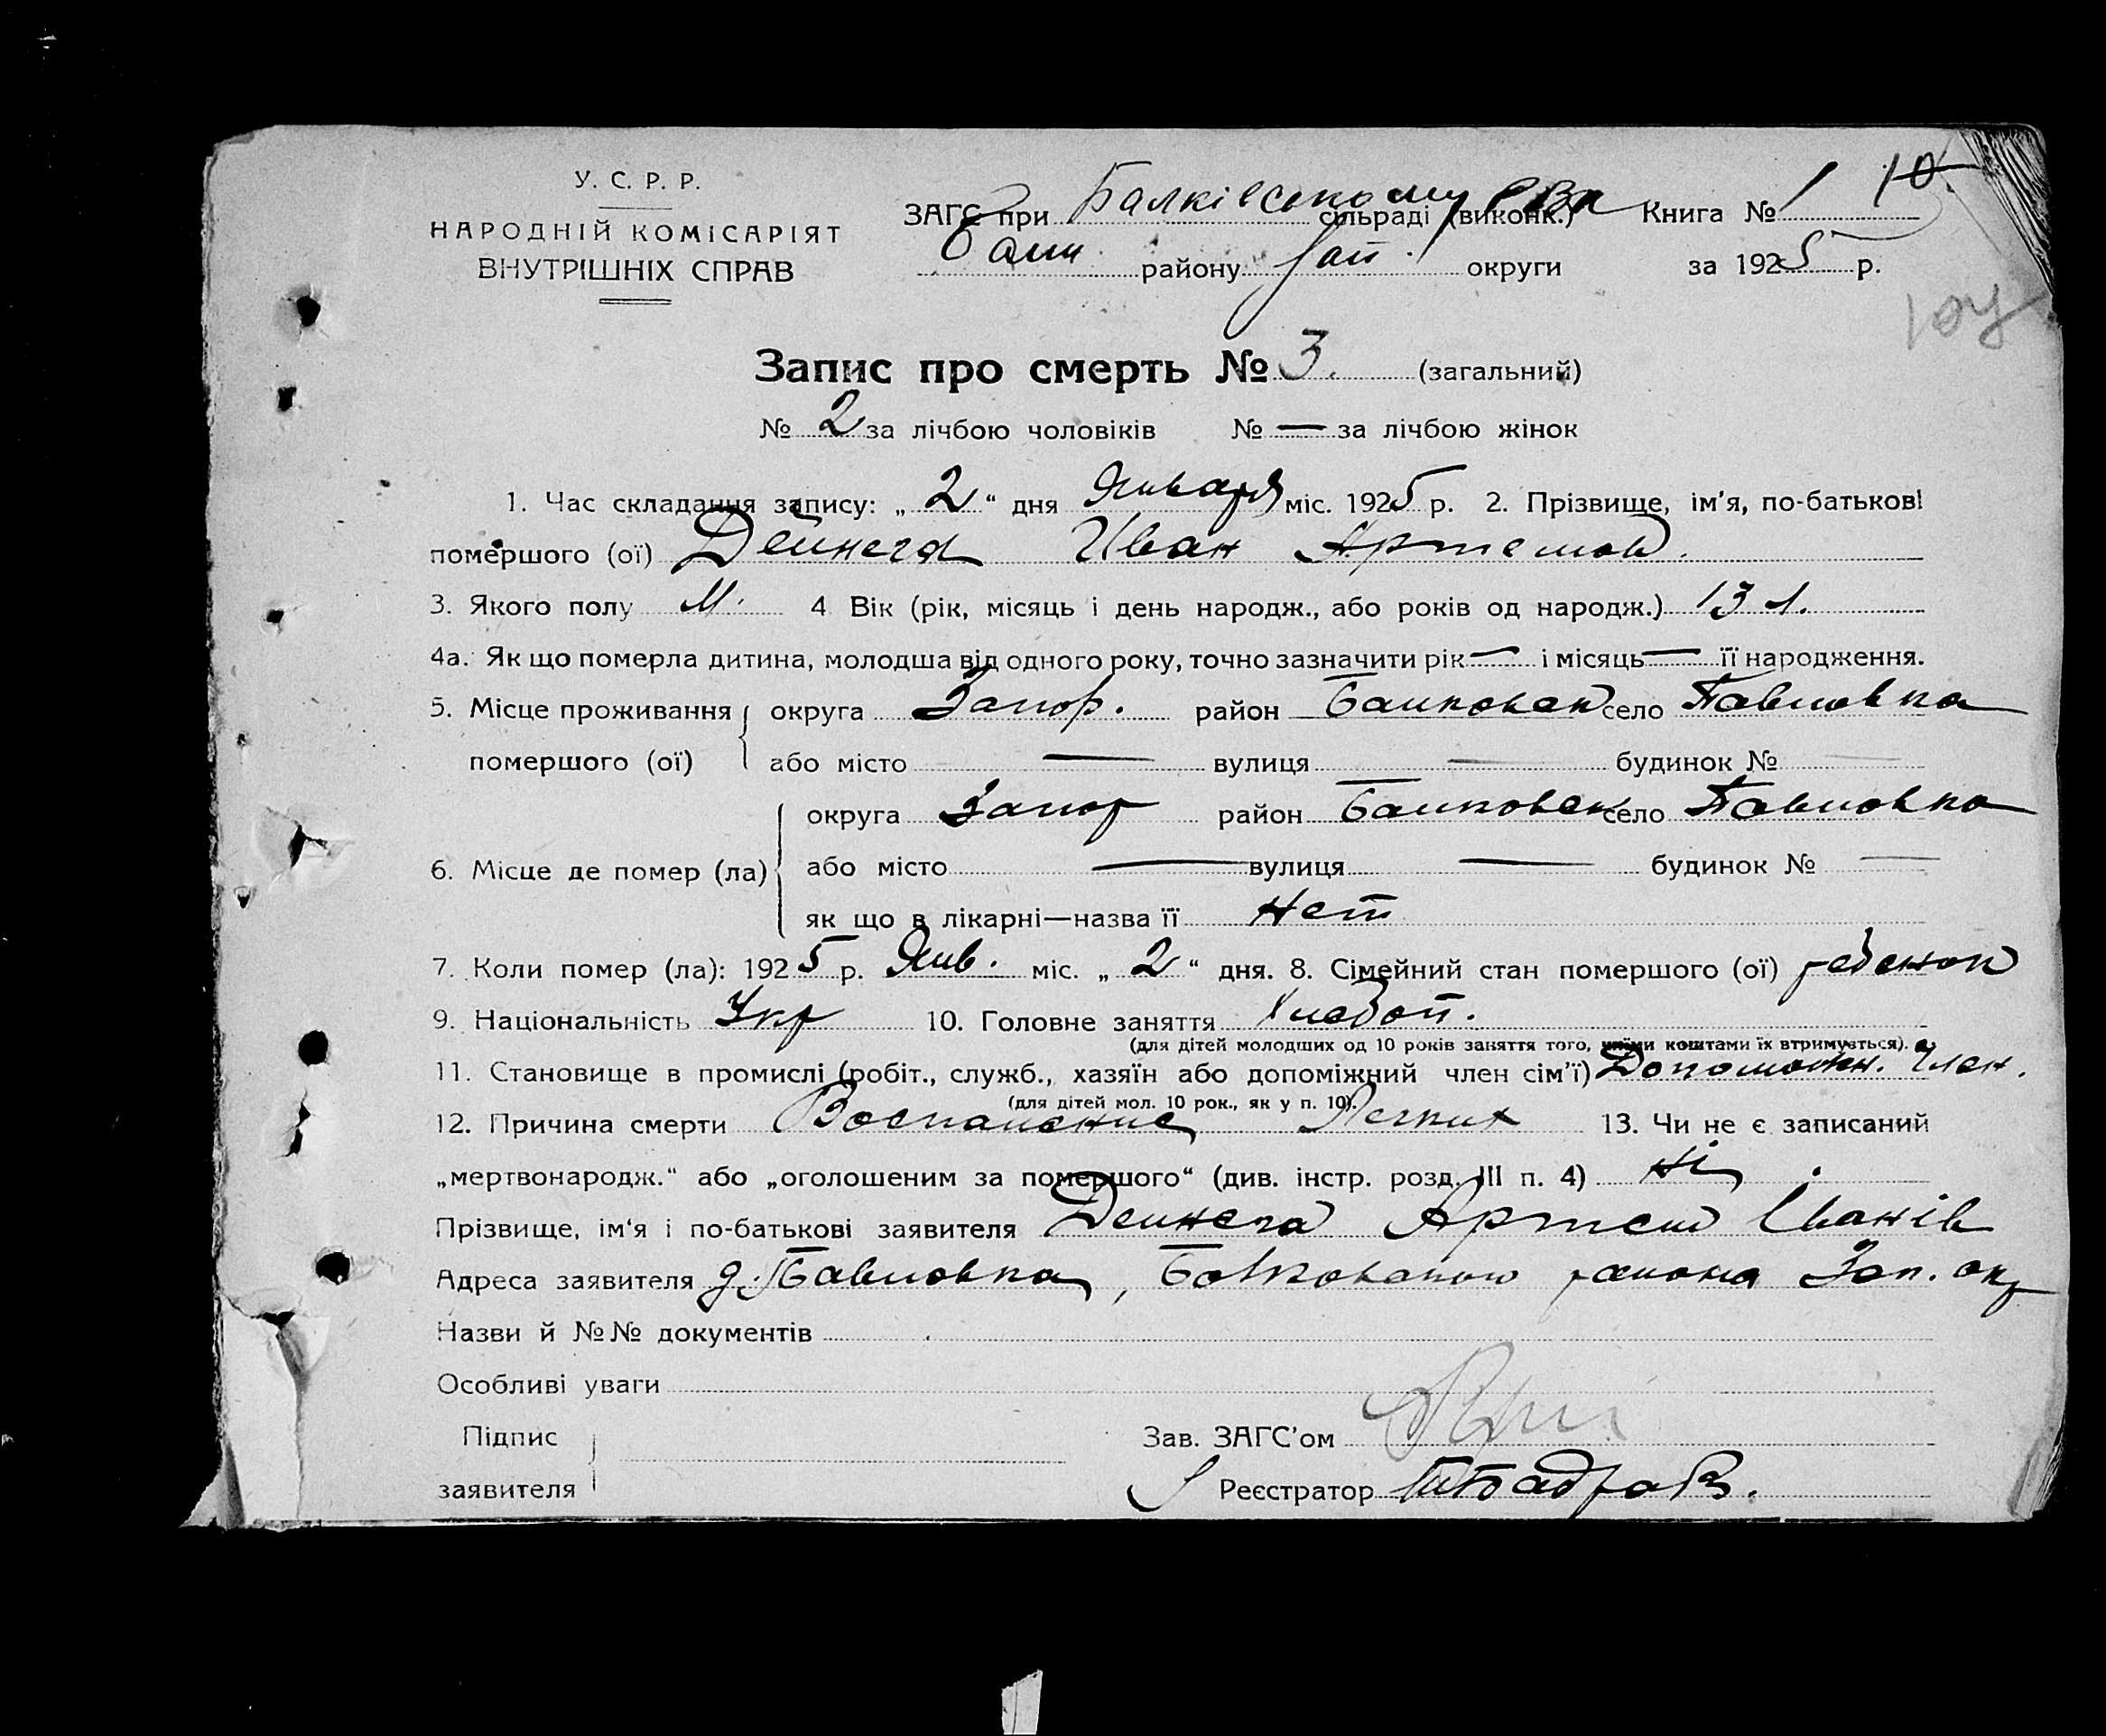 У. С. Р. Р.
НАРОДНІЙ КОМІСАРІЯТ
ВНУТРІШНІХ СПРАВ
10
ЗАГС при Балківському сільраді (виконк.) РВК Книга № 1
Балк. району Зап. округи за 1925 р.
104
Запис про смерть № 3. (загальний)
№ 2 за лічбою чоловіків № — за лічбою жінок
1. Час складання запису: „ 2 “ дня Января міс. 1925 р. 2. Прізвище, ім'я, по-батькові
помершого (ої) Дейнега Иван Артемов.
3. Якого полу М. 4 Вік (рік, місяць і день народж., або років од народж.) 13 л.
4а. Як що померла дитина, молодша від одного року, точно зазначити рік — і місяць — її народження.
5. Місце проживання округа Запор. район Балковск село Павловка
помершого (ої) або місто — вулиця — будинок № —
округа Запор район Балковск село Павловка
6. Місце де помер (ла) або місто — вулиця — будинок № —
як що в лікарні—назва її нет
7. Коли помер (ла): 1925 р. Янв. міс. „ 2 “ дня. 8. Сімейний стан помершого (ої) ребенок
9. Національність Укр 10. Головне заняття хлебоп.
(для дітей молодших од 10 років заняття того, чиїми коштами їх втримується).
11. Становище в промислі (робіт., служб., хазяїн або допоміжний член сім'ї) Допоможн. член.
(для дітей мол. 10 рок., як у п. 10).
12. Причина смерти Воспаление Легких 13. Чи не є записаний
„мертвонародж.“ або „оголошеним за помершого“ (див. інстр. розд. III п. 4) ні
Прізвище, ім'я і по-батькові заявителя Дейнега Артем Іванів
Адреса заявителя д. Павловка, Балковского района Зап. окр
Назви й №№ документів
Особливі уваги
Підпис
заявителя
Зав. ЗАГС'ом
Реєстратор